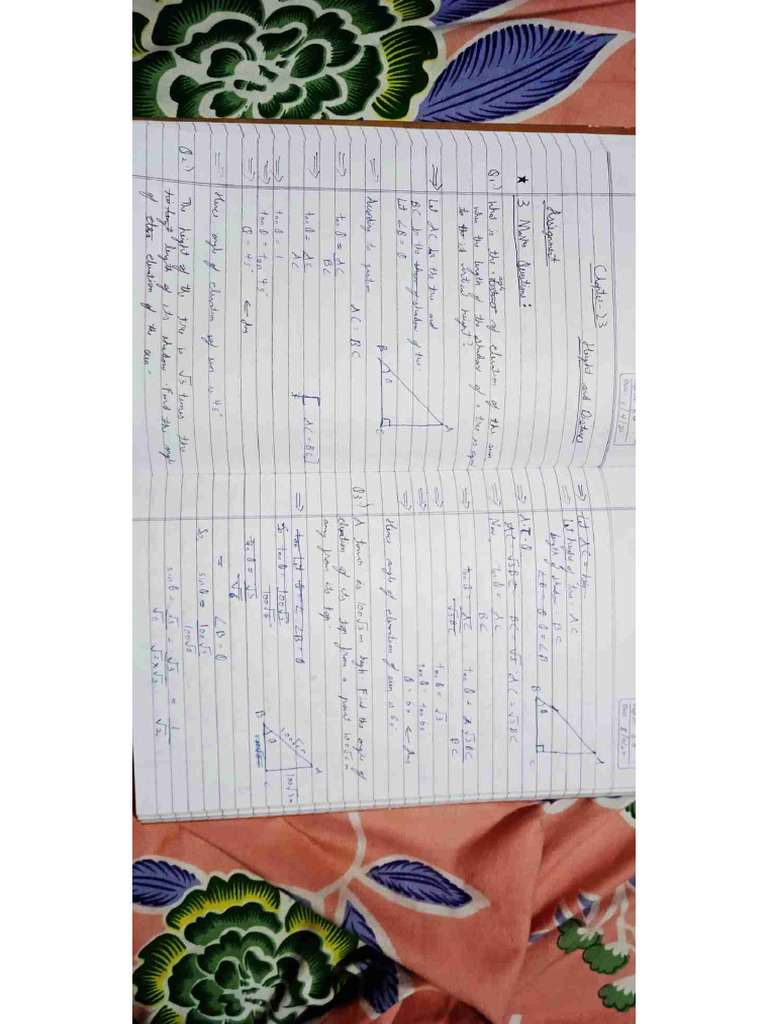 Chapter-23
Height and Distances
Assignment
★ 3 Marks Questions:
Q1.) What is the angle of elevation of the sun
when the length of the shadow of a tree is equal
to the it vertical height?
⇒ Let AC be the tree and
BC be the shadow of tree.
Let ∠B = θ
A
B θ C
⇒ According to question
AC = BC
⇒ tan θ = AC
BC
⇒ tan θ = AC
AC
[AC = BC]
⇒ tan θ = 1
⇒ tan θ = tan 45°
⇒ θ = 45° ← Ans
⇒ Hence angle of elevation of sun is 45°
Q2.) The height of the tree is √3 times the
length of its shadow. Find the angle
of elevation of the sun.
⇒ Let AC = tree
⇒ Let height of tree = AC
length of shadow = BC
∠B = θ θ = ∠B
A
B θ C
⇒ A.T.Q
AC = √3 BC
⇒ Now tan θ = AC
BC
⇒ tan θ = √3 BC
BC
⇒ tan θ = √3
⇒ tan θ = tan 60
⇒ θ = 60 ← Ans
Hence angle of elevation of sun is 60°
Q3.) A tower is 100√3 m high. Find the angle of
elevation of its top from a point 100√6 m
away from its top.
⇒ Let ∠B = θ
So tan θ = 100√3
100√6
tan θ = √3
√6
A
B θ C
100√6
100√3 m
= ∠B = θ
So, sin θ = 100√3
100√6
sin θ = √3 = √3 = 1
√6 √2×√3 √2